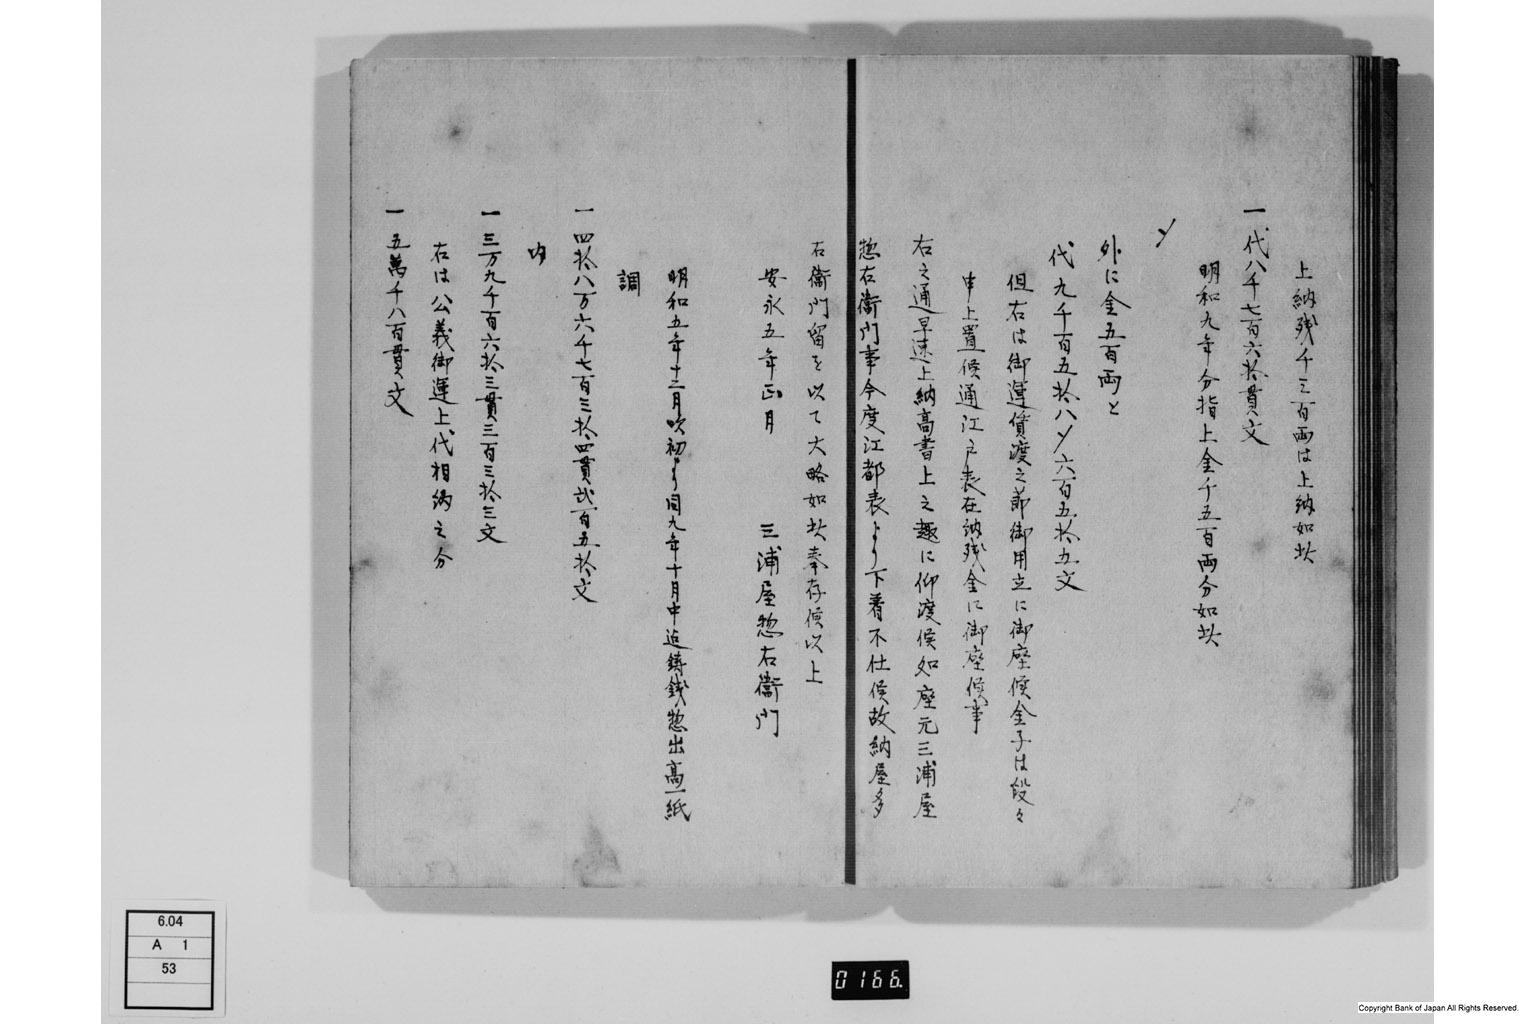 上納残千三百両は上納如此
一 代八千七百六拾貫文
明和九年分指上金千五百両分如此
〆
外に金五百両と
代九千百五拾八〆六百五拾五文
但右は御運賃渡之節御用立に御座候金子は段々
申上置候通江戸表在納残金に御座候事
右之通早速上納高書上之趣に仰渡候如座元三浦屋
惣右衛門事今度江都表より下着不仕候故納屋多
右衛門留を以て大略如此奉存候以上
安永五年正月 三浦屋惣右衛門
明和五年十二月吹初より同九年十月中迄鋳銭惣出高一紙
調
一 四拾八万六千七百三拾四貫弐百五拾文
内
一 三万九千百六拾三貫三百三拾三文
右は公義御運上代相納之分
一 五萬千八百貫文
6.04
A 1
53
0166.
Copyright Bank of Japan All Rights Reserved.